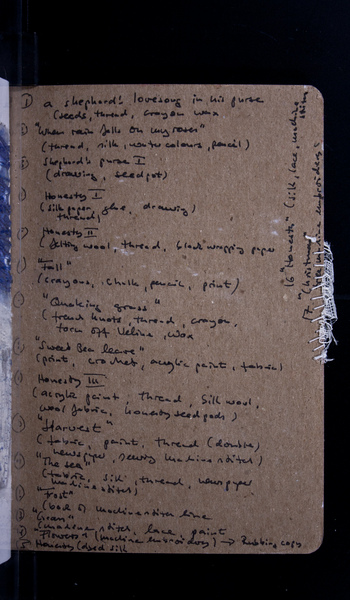 ① a shepherd's lovesong in his purse
(seeds, thread, crayon wax
"When rain falls on my roses"
(thread, silk, watercolours, pencil)
Shepherd's purse I
(drawing, seedpot)
Honesty I
(silk paper, glue, drawing)
thread,
Honesty II
(felting wool, thread, black wrapping paper
"Fall"
(crayons, chalk, pencils, print)
"Quaking grass"
(french knots, thread, crayon,
torn off Veline, wax
"Sweet Bea leave"
(print, crochet, acrylic paint, fabric)
Honesty III
(acrylic paint, thread, silk wool,
wool fabric, honesty seed pods)
"Harvest"
(fabric, paint, thread (double)
newspaper, sewing machine stites)
"The sea"
(fabric, silk, thread, newspaper
machine stites)
"Frost"
(back of machine stites line
(machine stites, lace, paint
Flowers + (machine embroidery) → Rubbing copy
Honesty (dyed silk
16 "Honesty" (silk, lace, machine
17 "Christmas"
machine embroidery